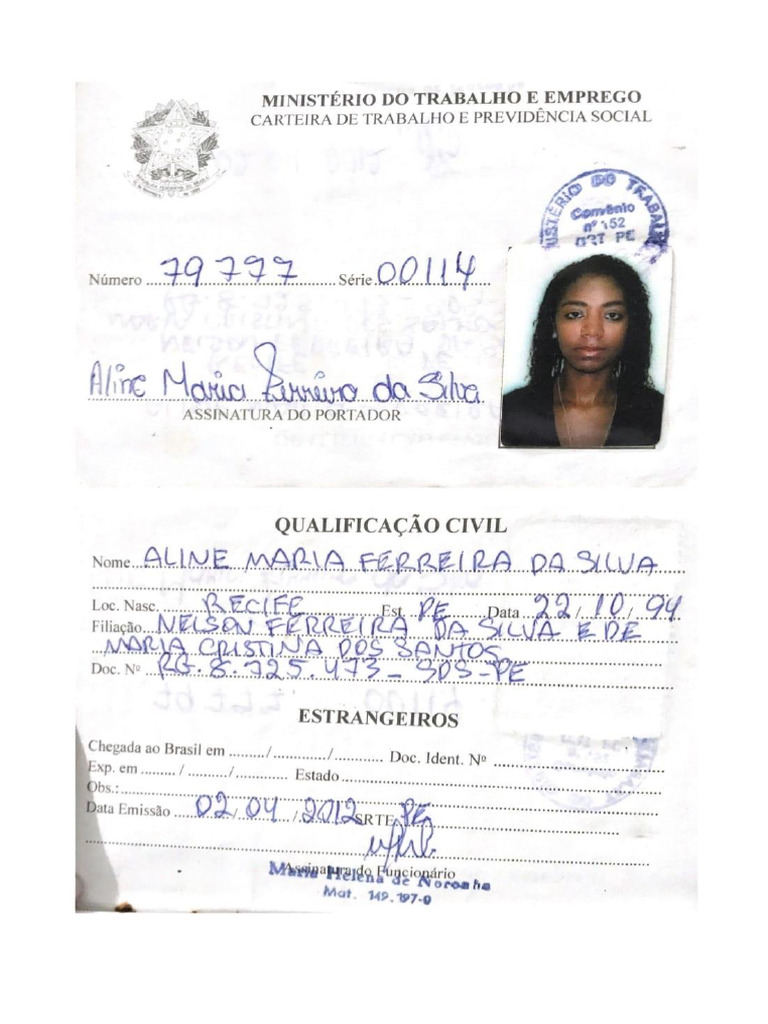 MINISTÉRIO DO TRABALHO E EMPREGO
CARTEIRA DE TRABALHO E PREVIDÊNCIA SOCIAL
MINISTÉRIO DO TRABALHO
Convênio
nº 152
DRT PE
Número 79777 Série 00114
Aline Maria Ferreira da Silva
ASSINATURA DO PORTADOR
QUALIFICAÇÃO CIVIL
Nome ALINE MARIA FERREIRA DA SILVA
Loc. Nasc. RECIFE Est. PE Data 22/10/94
Filiação NELSON FERREIRA DA SILVA E DE
MARIA CRISTINA DOS SANTOS
Doc. Nº RG. 8.725.473 - SDS - PE
ESTRANGEIROS
Chegada ao Brasil em ........./............/............ Doc. Ident. Nº
Exp. em ........./........../............ Estado
Obs.:
Data Emissão 02/04/2012 SRTE PE
Assinatura do Funcionário
Maria Helena de Noronha
Mat. 149.197-0